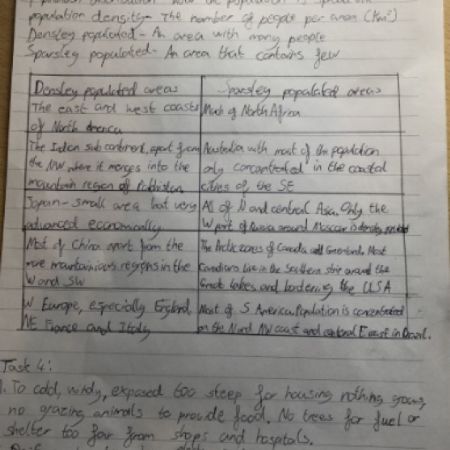 population density- The number of people per area (km²)
Densley populated- An area with many people
Sparsley populated- An area that contains few
Densley populated areas
Sparsley populated areas
The east and west coasts
of North America
Much of North Africa
The Indian sub continent, apart from
the NW where it merges into the
mountain region of Pakistan
Australia with most of the population
only concentrated in the coastal
cities of the SE
Japan- small area but very
advanced economically
All of N and central Asia. Only the
W part of Russia around Moscow is densley
Most of China apart from the
more mountainious regions in the
W and SW
The Arctic zones of Canada and Greenland. Most
Canadians live in the Southern strip around the
Great lakes and bordering the USA
W Europe, especially England,
NE France and Italy
Most of S America. Population is concentrated
on the N and NW coast and central E coast in Brazil.
Task 4:
1. To cold, windy, exposed too steep for housing nothing grows,
no grazing animals to provide food. No trees for fuel or
shelter too far from shops and hospitals.